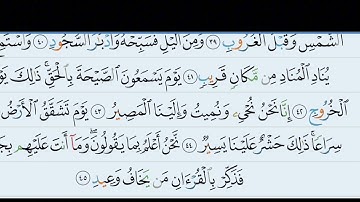 ٱلشَّمْسِ وَقَبْلَ ٱلْغُرُوبِ ٣٩ وَمِنَ ٱلَّيْلِ فَسَبِّحْهُ وَأَدْبَٰرَ ٱلسُّجُودِ ٤٠ وَٱسْتَمِعْ
يُنَادِ ٱلْمُنَادِ مِن مَّكَانٍ قَرِيبٍ ٤١ يَوْمَ يَسْمَعُونَ ٱلصَّيْحَةَ بِٱلْحَقِّ ۚ ذَٰلِكَ يَوْمُ
ٱلْخُرُوجِ ٤٢ إِنَّا نَحْنُ نُحْىِۦ وَنُمِيتُ وَإِلَيْنَا ٱلْمَصِيرُ ٤٣ يَوْمَ تَشَقَّقُ ٱلْأَرْضُ
سِرَاعًا ۚ ذَٰلِكَ حَشْرٌ عَلَيْنَا يَسِيرٌ ٤٤ نَّحْنُ أَعْلَمُ بِمَا يَقُولُونَ ۖ وَمَآ أَنتَ عَلَيْهِم
فَذَكِّرْ بِٱلْقُرْءَانِ مَن يَخَافُ وَعِيدِ ٤٥